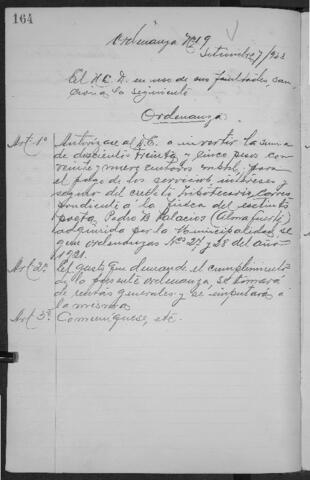 164
Ordenanza Nº 9
Setiembre 7/923
El H.C.D. en uso de sus facultades, san-
ciona la siguiente
Ordenanza
Art. 1º Autorízase al D.E. a invertir la suma
de doscientos treinta y cinco pesos con
veinte y nueve centavos m/nal, para
el pago de los servicios intereses
seguro del crédito hipotecario corres
pondiente a la finca del extinto
poeta Pedro B. Palacios (Almafuerte)
adquirida por la Municipalidad se
gún ordenanzas Nos. 27 y 28 del año
1921.
Art. 2º El gasto que demande el cumplimiento
de la presente ordenanza, se tomará
de rentas generales y se imputará a
la misma
Art. 3º Comuníquese, etc.